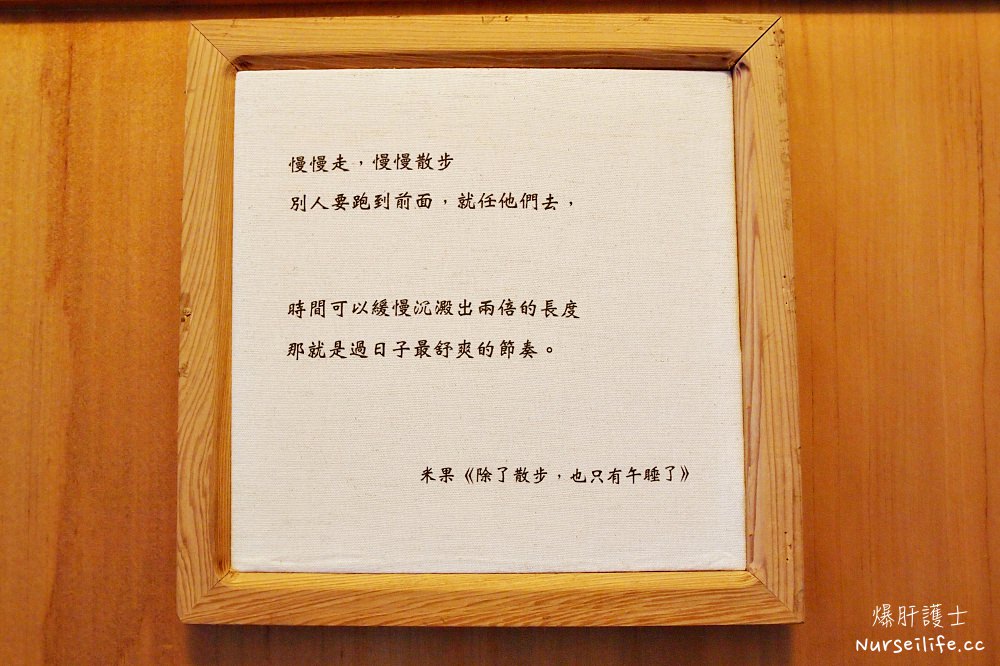 慢慢走，慢慢散步
別人要跑到前面，就任他們去，
時間可以緩慢沉澱出兩倍的長度
那就是過日子最舒爽的節奏。
米果《除了散步，也只有午睡了》
爆肝護士
Nurseilife.cc